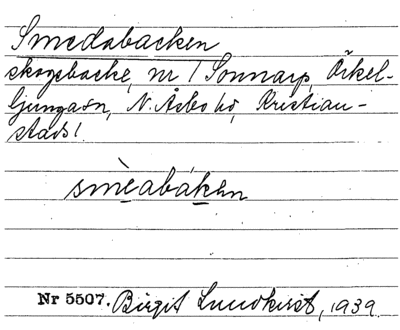 Smedabacken
skogsbacke, nr 1 Sonnarp, Örkel-
ljunga sn, N. Åsbo hd, Kristian-
stads l
smèabáken
Nr 5507. Birgit Lundkvist, 1939.